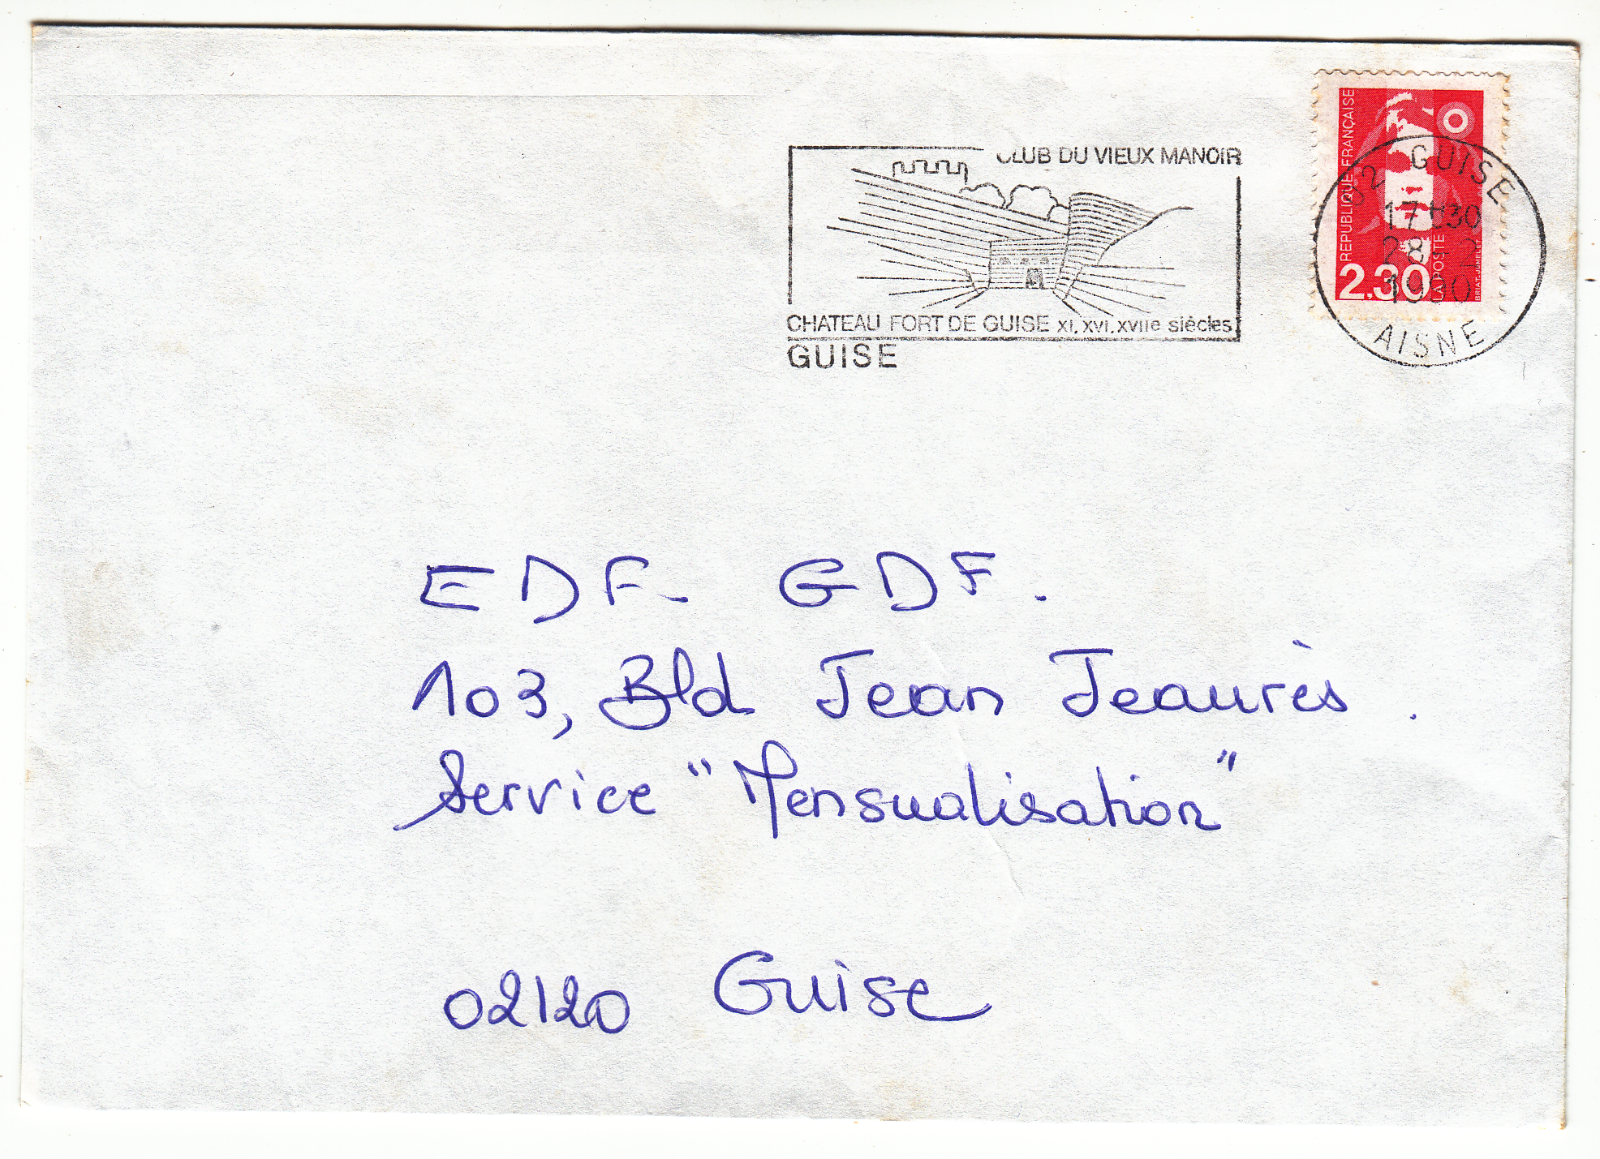 CLUB DU VIEUX MANOIR
CHATEAU FORT DE GUISE XI. XVI. XVIIe siècles
GUISE
REPUBLIQUE FRANÇAISE
2,30
LA POSTE
02 GUISE
17H30
28 - 2
1990
AISNE
EDF - GDF.
103, Bld Jean Jeaurès.
Service "Mensualisation"
02120 Guise